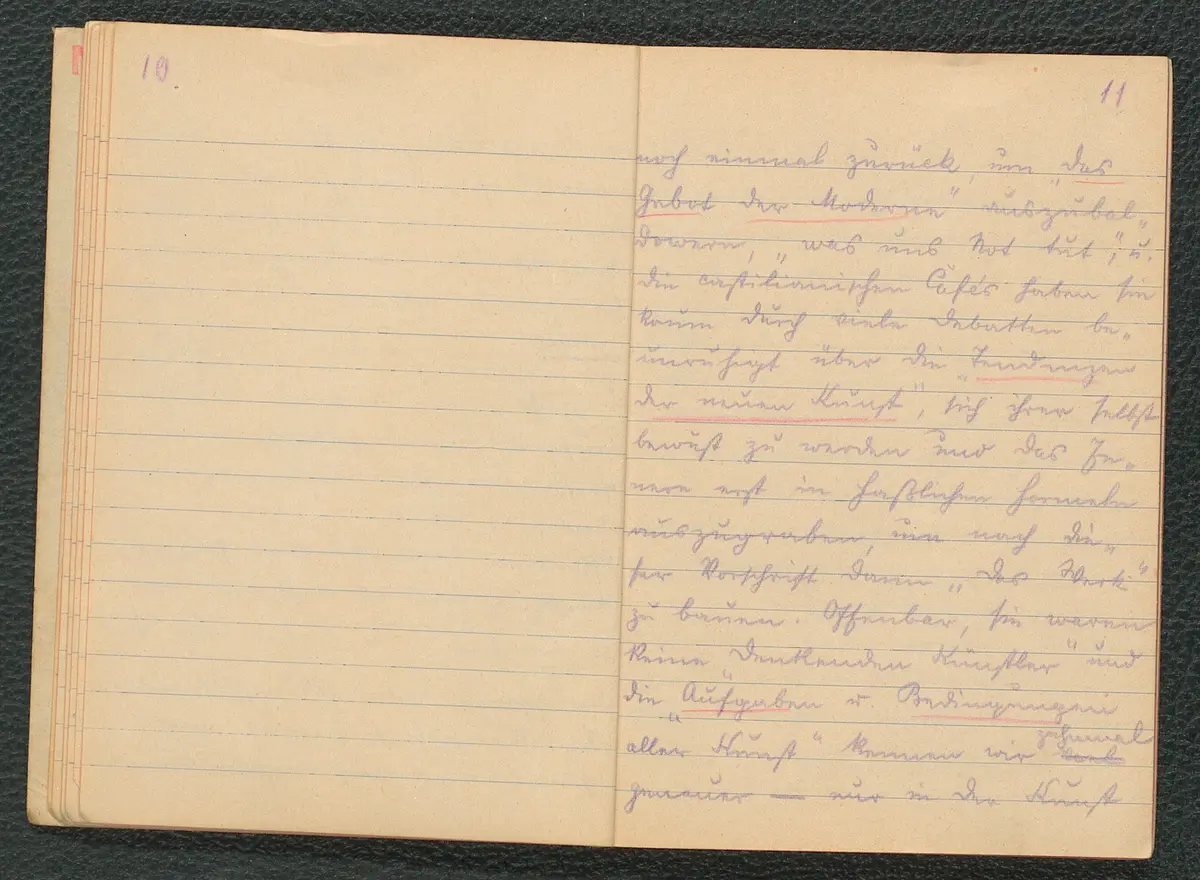 10
11
noch einmal zurück, um „das
Gebot der Moderne" auszubal„
dowern, „was uns Not tut"; u.
die castilianischen Cafés haben sie
kaum durch viele Debatten be„
unruhigt über die „Tendenzen
der neuen Kunst", sich ihrer selbst
bewußt zu werden und das In„
nere erst in häßlichen Formeln
auszugraben, um nach die„
ser Vorschrift dann „das Werk"
zu bauen. Offenbar, sie waren
keine „denkenden Künstler" und
die „Aufgaben u. Bedingungen
zehnmal
aller Kunst" kennen wir
genauer — nur in der Kunst